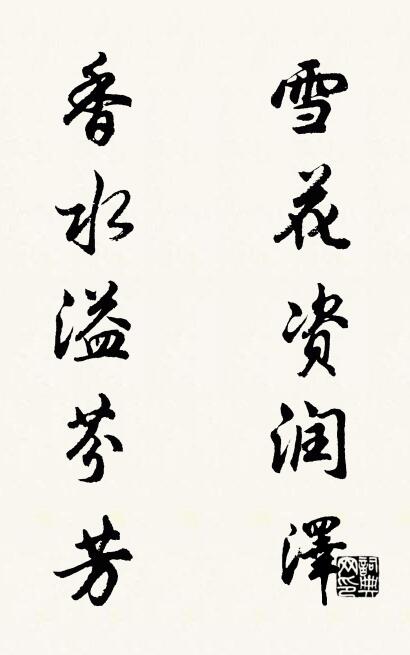 雪花资润澤
香水溢芬芳
詞典网印